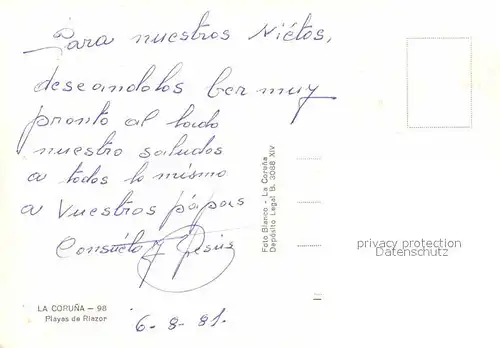 Para nuestros Niétos,
deseandolos ber muy
pronto al lado
nuestro saludos
a todos lo mismo
a Vuestros pápas
Consuélo y Jesús
6-8-81.
LA CORUÑA — 98
Playas de Riazor
Foto Blanco - La Coruña
Depósito Legal B. 3088 XIV
privacy protection
Datenschutz